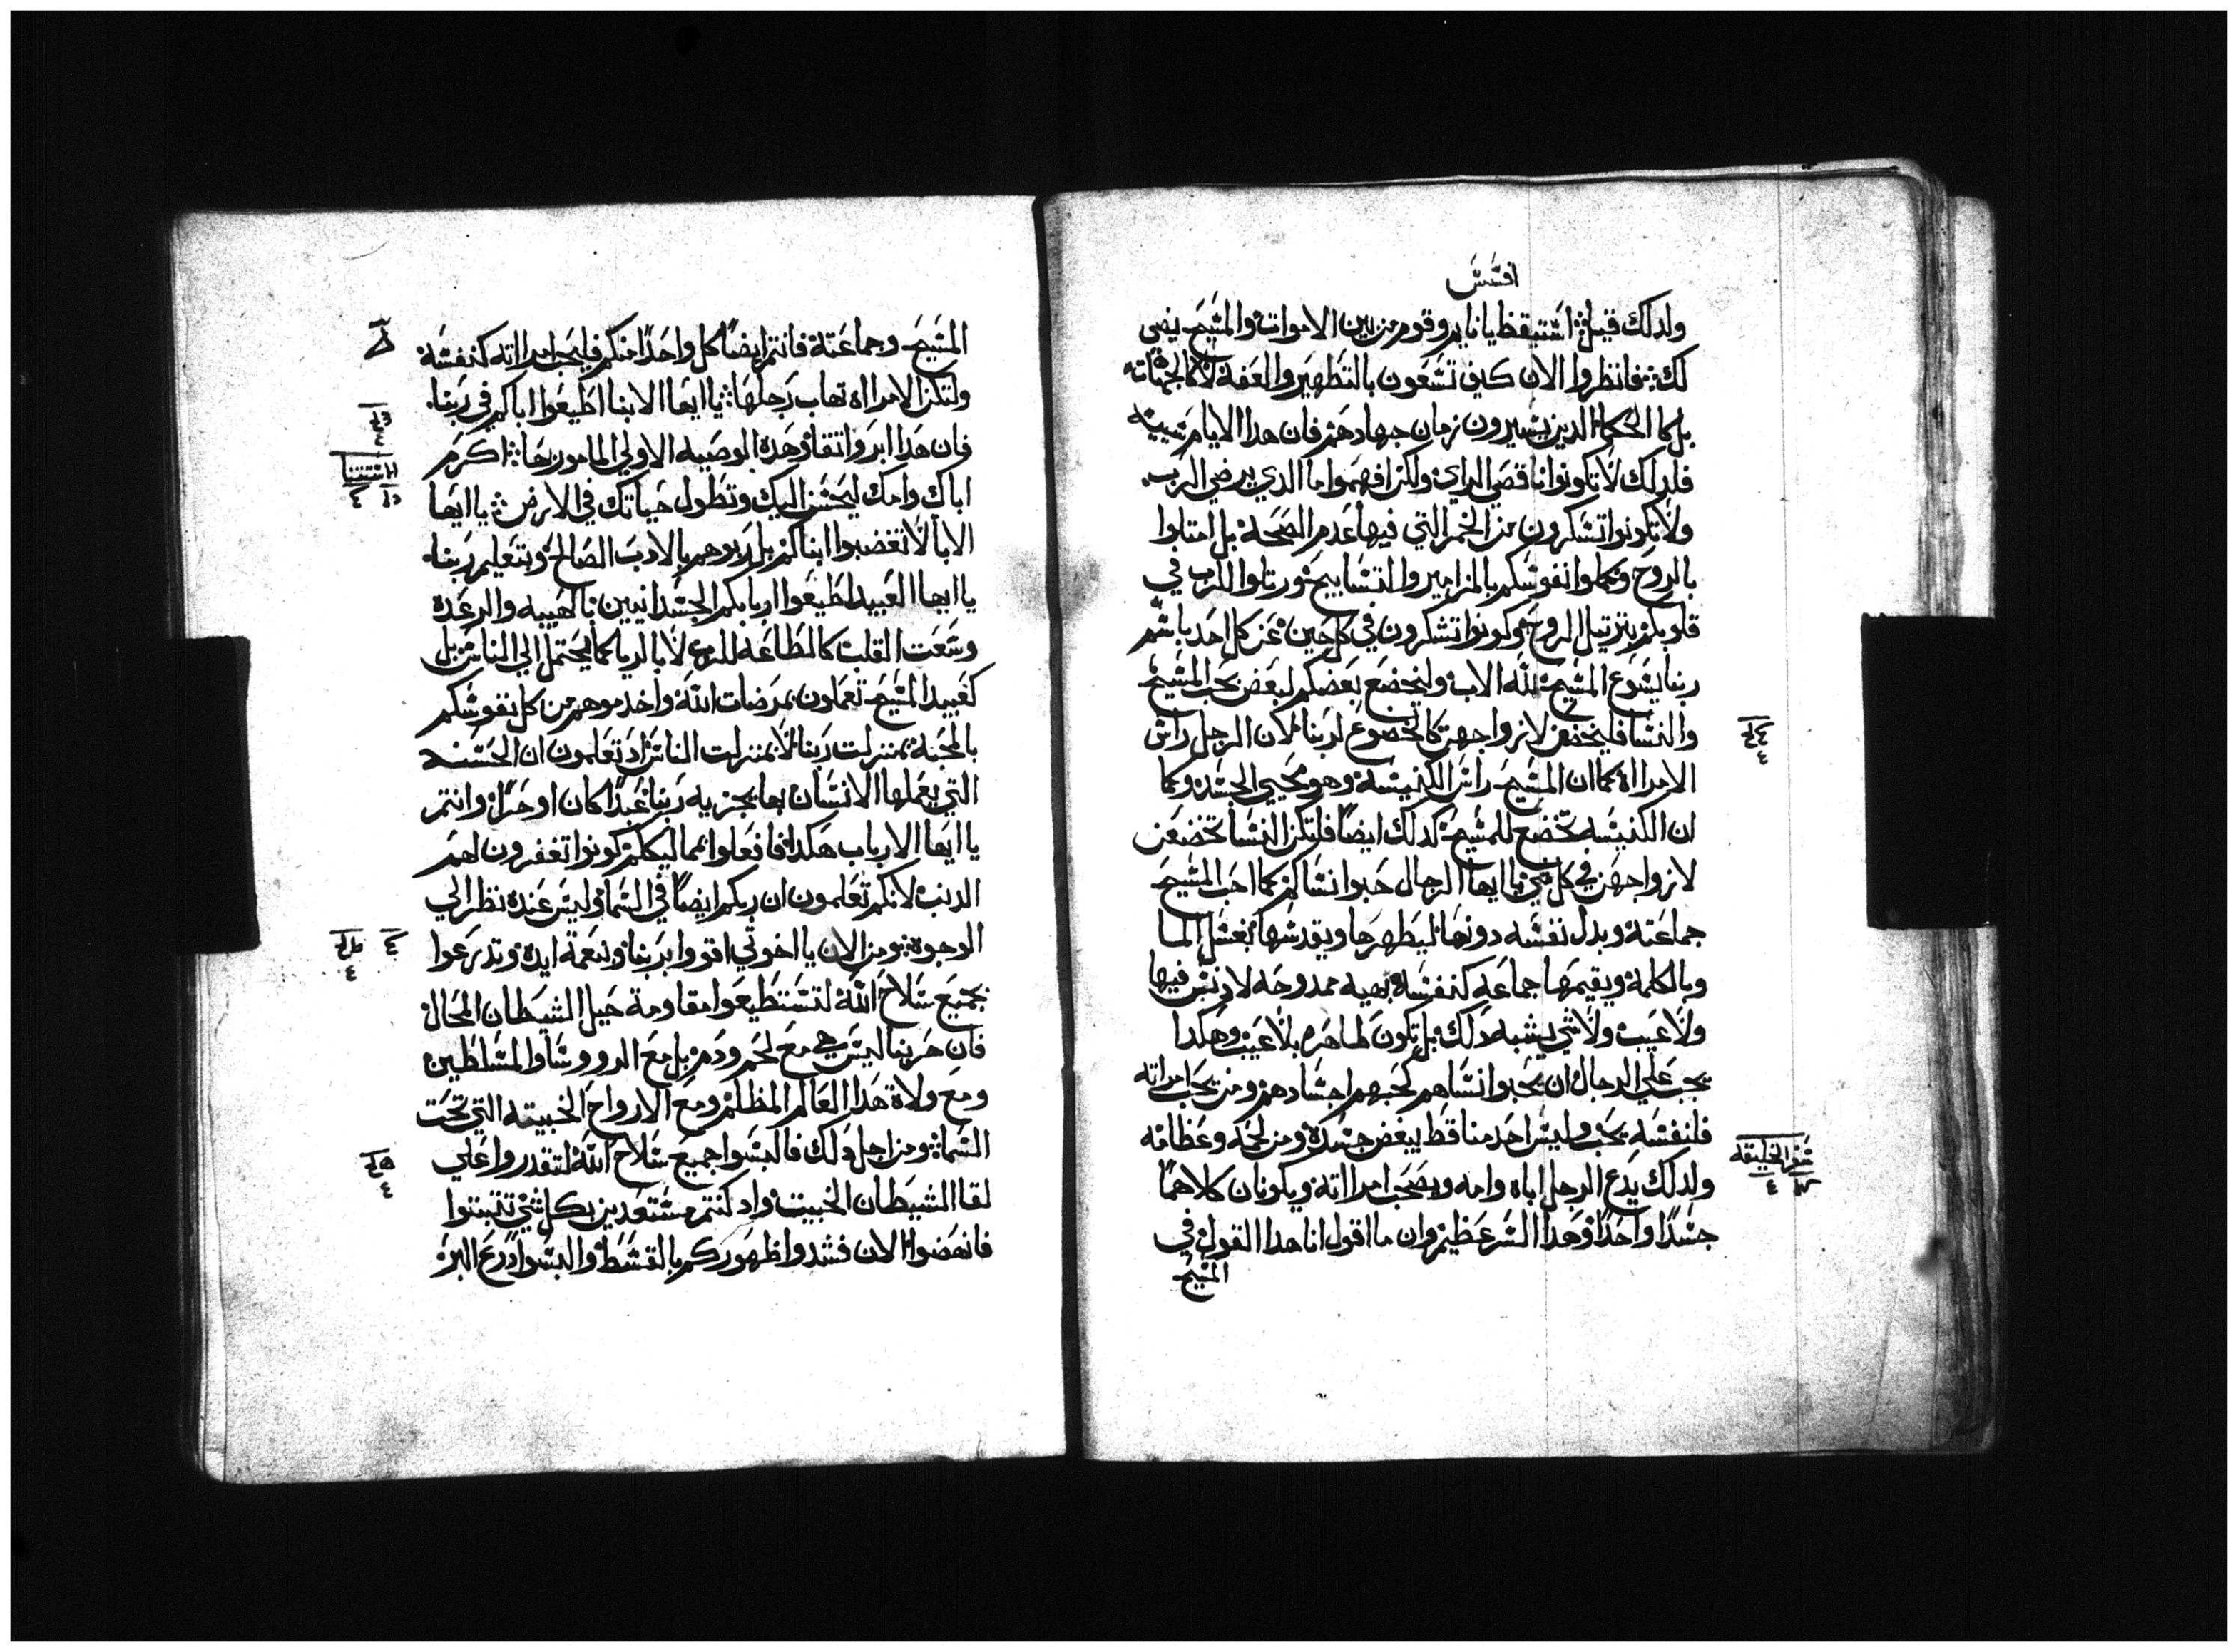 افسس
ولدلك قيل استيقظ يا نايم وقوم من بين الاموات والمسيح يضي
لك فانظروا الان كيف تسعون بالتطهير والعفة لا كالجهال
بل كالحكما الدين يشترون زمان جهادهم فان هدا الايام شييه
فلدلك لا تكونوا ناقصي الراي ولكن افهموا ما الدي يرضي الرب
ولا تكونوا تسكرون من الخمر التي فيها عدم الصحة بل امتلوا
بالروح وكملوا نفوسكم بالمزامير والتسابيح ورتلوا للرب في
قلوبكم بترتيل الروح وكونوا تشكرون في كل حين عن كل احد باسم
ربنا يسوع المسيح لله الاب وليخضع بعضكم لبعض بحب المسيح
والنسا فليخضعن لازواجهن كالخضوع لربنا لان الرجل راس
الامراة كما ان المسيح راس الكنيسة وهو محيي الجسد وكما
ان الكنيسه تخضع للمسيح كدلك ايضا فلتكن النسا تخضعن
لازواجهن في كل شي يا ايها الرجال حبوا نساكم كما احب المسيح
جماعتة وبدل نفسه دونها ليطهرها ويقدسها بغسل الما
وبالكلمة ويقيمها جماعه كنفسة بهيه ممدوحه لا دنس فيها
ولا عيب ولا شي يشبه دلك بل تكون طاهره بلا عيب وهكدا
يجب علي الرجال ان يحبوا نساهم كحبهم اجسادهم ومن يحب امراته
فلنفسه يحب وليس احد منا قط يبغض جسدة ومن لحمه وعظامه
ولدلك يدع الرجل اباه وامه ويصحب امرااته ويكونان كلاهما
جسدا واحدا وهدا السر عظيم وان ما اقول انا هدا القول في
المسيح
سفر الخليقه
المسيح وجماعتة فانتم ايضا كل واحدا منكم فليحب امرااته كنفسة
ولتكن الامرااه تهاب رجلها يا ايها الابنا اطيعوا اباكم في ربنا
فان هدا ابر واتقا وهدة الوصيه الاولي المامور بها اكرم
اباك وامك ليحسن اليك وتطول حياتك في الارض يا ايها
الابا لا تغضبوا ابناكم بل ربوهم بالادب الصالح وبتعليم ربنا
يا ايها العبيد اطيعوا اربابكم الجسدانيين بالهيبه والرعدة
وسعت القلب كالطاعه للرب لا بالريا كما يحتمل الي الناس بل
كعبيد المسيح تعملون بمرضات الله واخدموهم من كل نفوسكم
بالمحبة بمنزلت ربنا لا بمنزلت الناس اد تعلمون ان الحسنه
التي يعملها الانسان بها يجزيه ربنا عبدا كان او حرا وانتم
يا ايها الارباب هكدا فافعلوا بمماليككم كونوا تغفرون لهم
الدنب لانكم تعلمون ان ربكم ايضا في السما وليس عندة نظر الي
الوجوة ومن الان يا اخوتي اقووا بربنا وبنعمة ايدة وتدرعوا
بجميع سلاح الله لتستطيعوا مقاومة حيل الشيطان المحال
فان حربنا ليس هي مع لحم ودم بل مع الرووسا والمسلطين
ومع ولاة هدا العالم المظلم ومع الارواح الخبيته التي تحت
السما ومن اجل دلك فالبسوا جميع سلاح الله لتقدروا علي
لقا الشيطان الخبيت واد كنتم مستعدين بكل شي تتبتوا
فانهضوا الان فشدوا ظهوركم بالقسط والبسوا درع البر